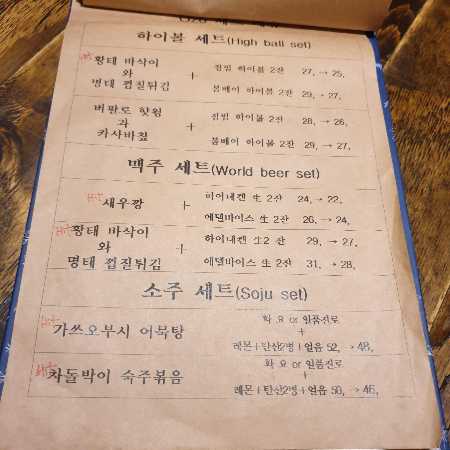 하이볼 세트(High ball set)
Hit 황태 바삭이
와
명태 껍질튀김
+
짐빔 하이볼 2잔 27, → 25,
봄베이 하이볼 2잔 29, → 27,
버팔로 핫윙
과
카사바칩
+
짐빔 하이볼 2잔 28, → 26,
봄베이 하이볼 2잔 29, → 27,
맥주 세트(World beer set)
Hit 새우깡
+
하이네켄 生 2잔 24, → 22,
에델바이스 生 2잔 26, → 24,
Hit 황태 바삭이
와
명태 껍질튀김
+
하이네켄 生2 잔 29, → 27,
에델바이스 生 2잔 31, → 28,
소주 세트(Soju set)
Hit 가쓰오부시 어묵탕
화 요 or 일품진로
+
레몬+탄산2병+얼음 52, → 48,
Hit 차돌박이 숙주볶음
화 요 or 일품진로
+
레몬+탄산2병+얼음 50, → 46,